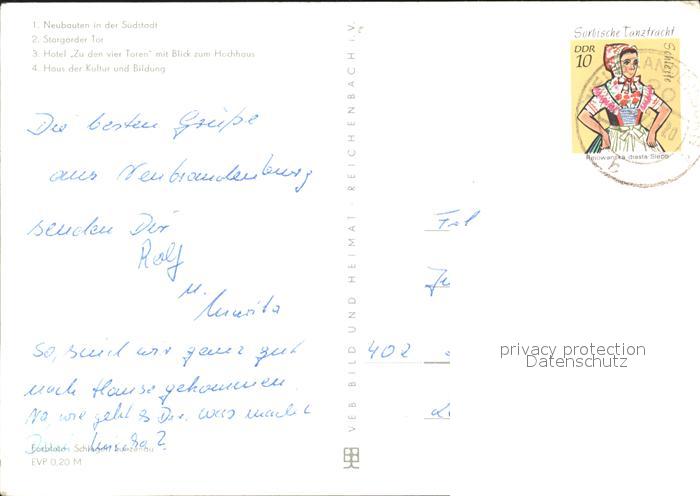 1. Neubauten in der Südstadt
2. Stargarder Tor
3. Hotel „Zu den vier Toren" mit Blick zum Hochhaus
4. Haus der Kultur und Bildung
Die besten Grüße
aus Neubrandenburg
senden Dir
Rolf
u.
Marita
So, sind wir ganz gut
nach Hause gekommen.
Na, wie geht es Dir. was macht
Dein
EVP 0,20 M
VEB BILD UND HEIMAT · REICHENBACH i.V.
Sorbische Tanztracht
Schleife
DDR
10
402
privacy protection
Datenschutz